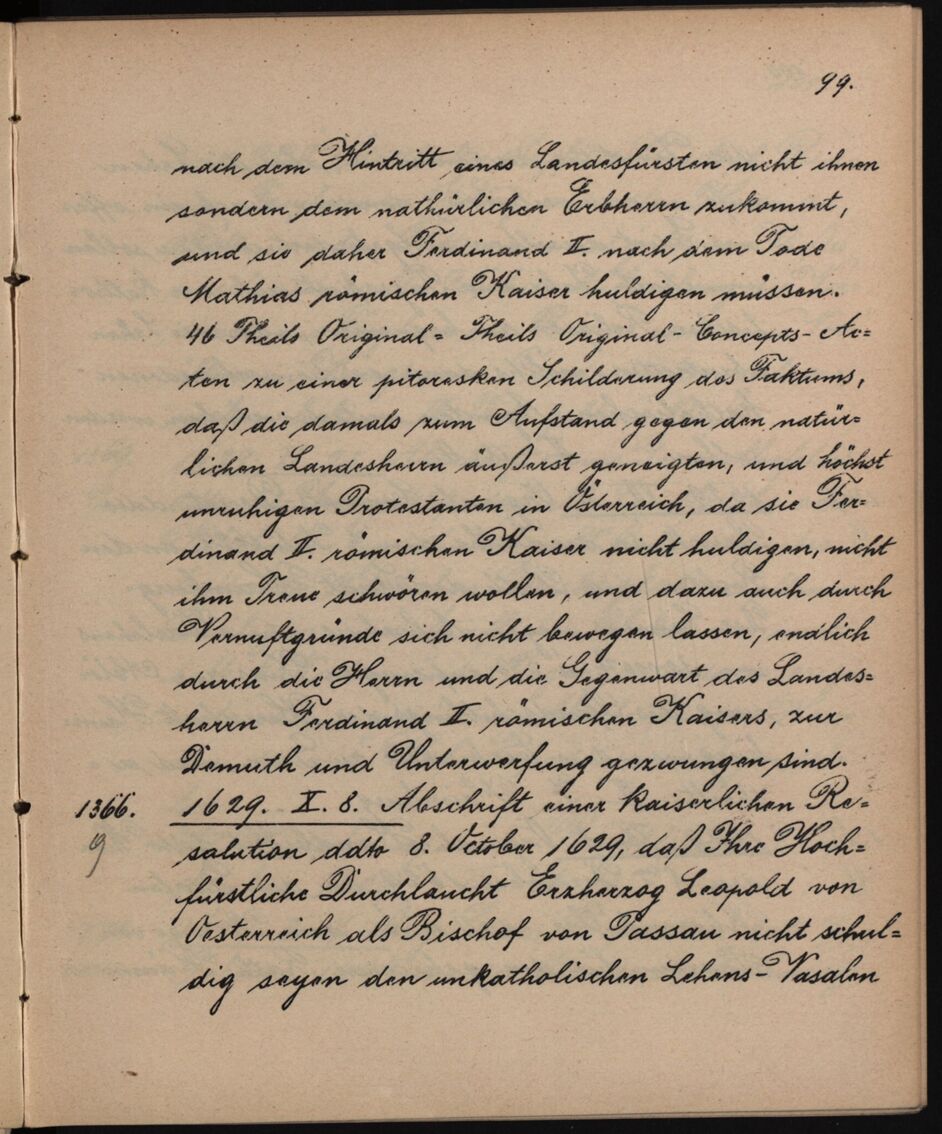 99.
nach dem Hintritt eines Landesfürsten nicht ihnen
sondern dem nathürlichen Erbherrn zukommt,
und sie daher Ferdinand II. nach dem Tode
Mathias römischen Kaiser huldigen müssen.
46 Theils Original= Theils Original-Concepts-Ac=
ten zu einer pitoresken Schilderung des Faktums,
daß die damals zum Aufstand gegen den natür=
lichen Landesherrn äußerst geneigten, und höchst
unruhigen Protestanten in Österreich, da sie Fer=
dinand II. römischen Kaiser nicht huldigen, nicht
ihm Treue schwören wollen, und dazu auch durch
Vernuftgründe sich nicht bewegen lassen, endlich
durch die Herrn und die Gegenwart des Landes=
herrn Ferdinand II. römischen Kaisers, zur
Demuth und Unterwerfung gezwungen sind.
1366. 1629. X. 8. Abschrift einer kaiserlichen Re=
9 salution ddto 8. October 1629, daß Ihre Hoch=
fürstliche Durchlaucht Erzherzog Leopold von
Oesterreich als Bischof von Passau nicht schul=
dig seyen den unkatholischen Lehens-Vasalen